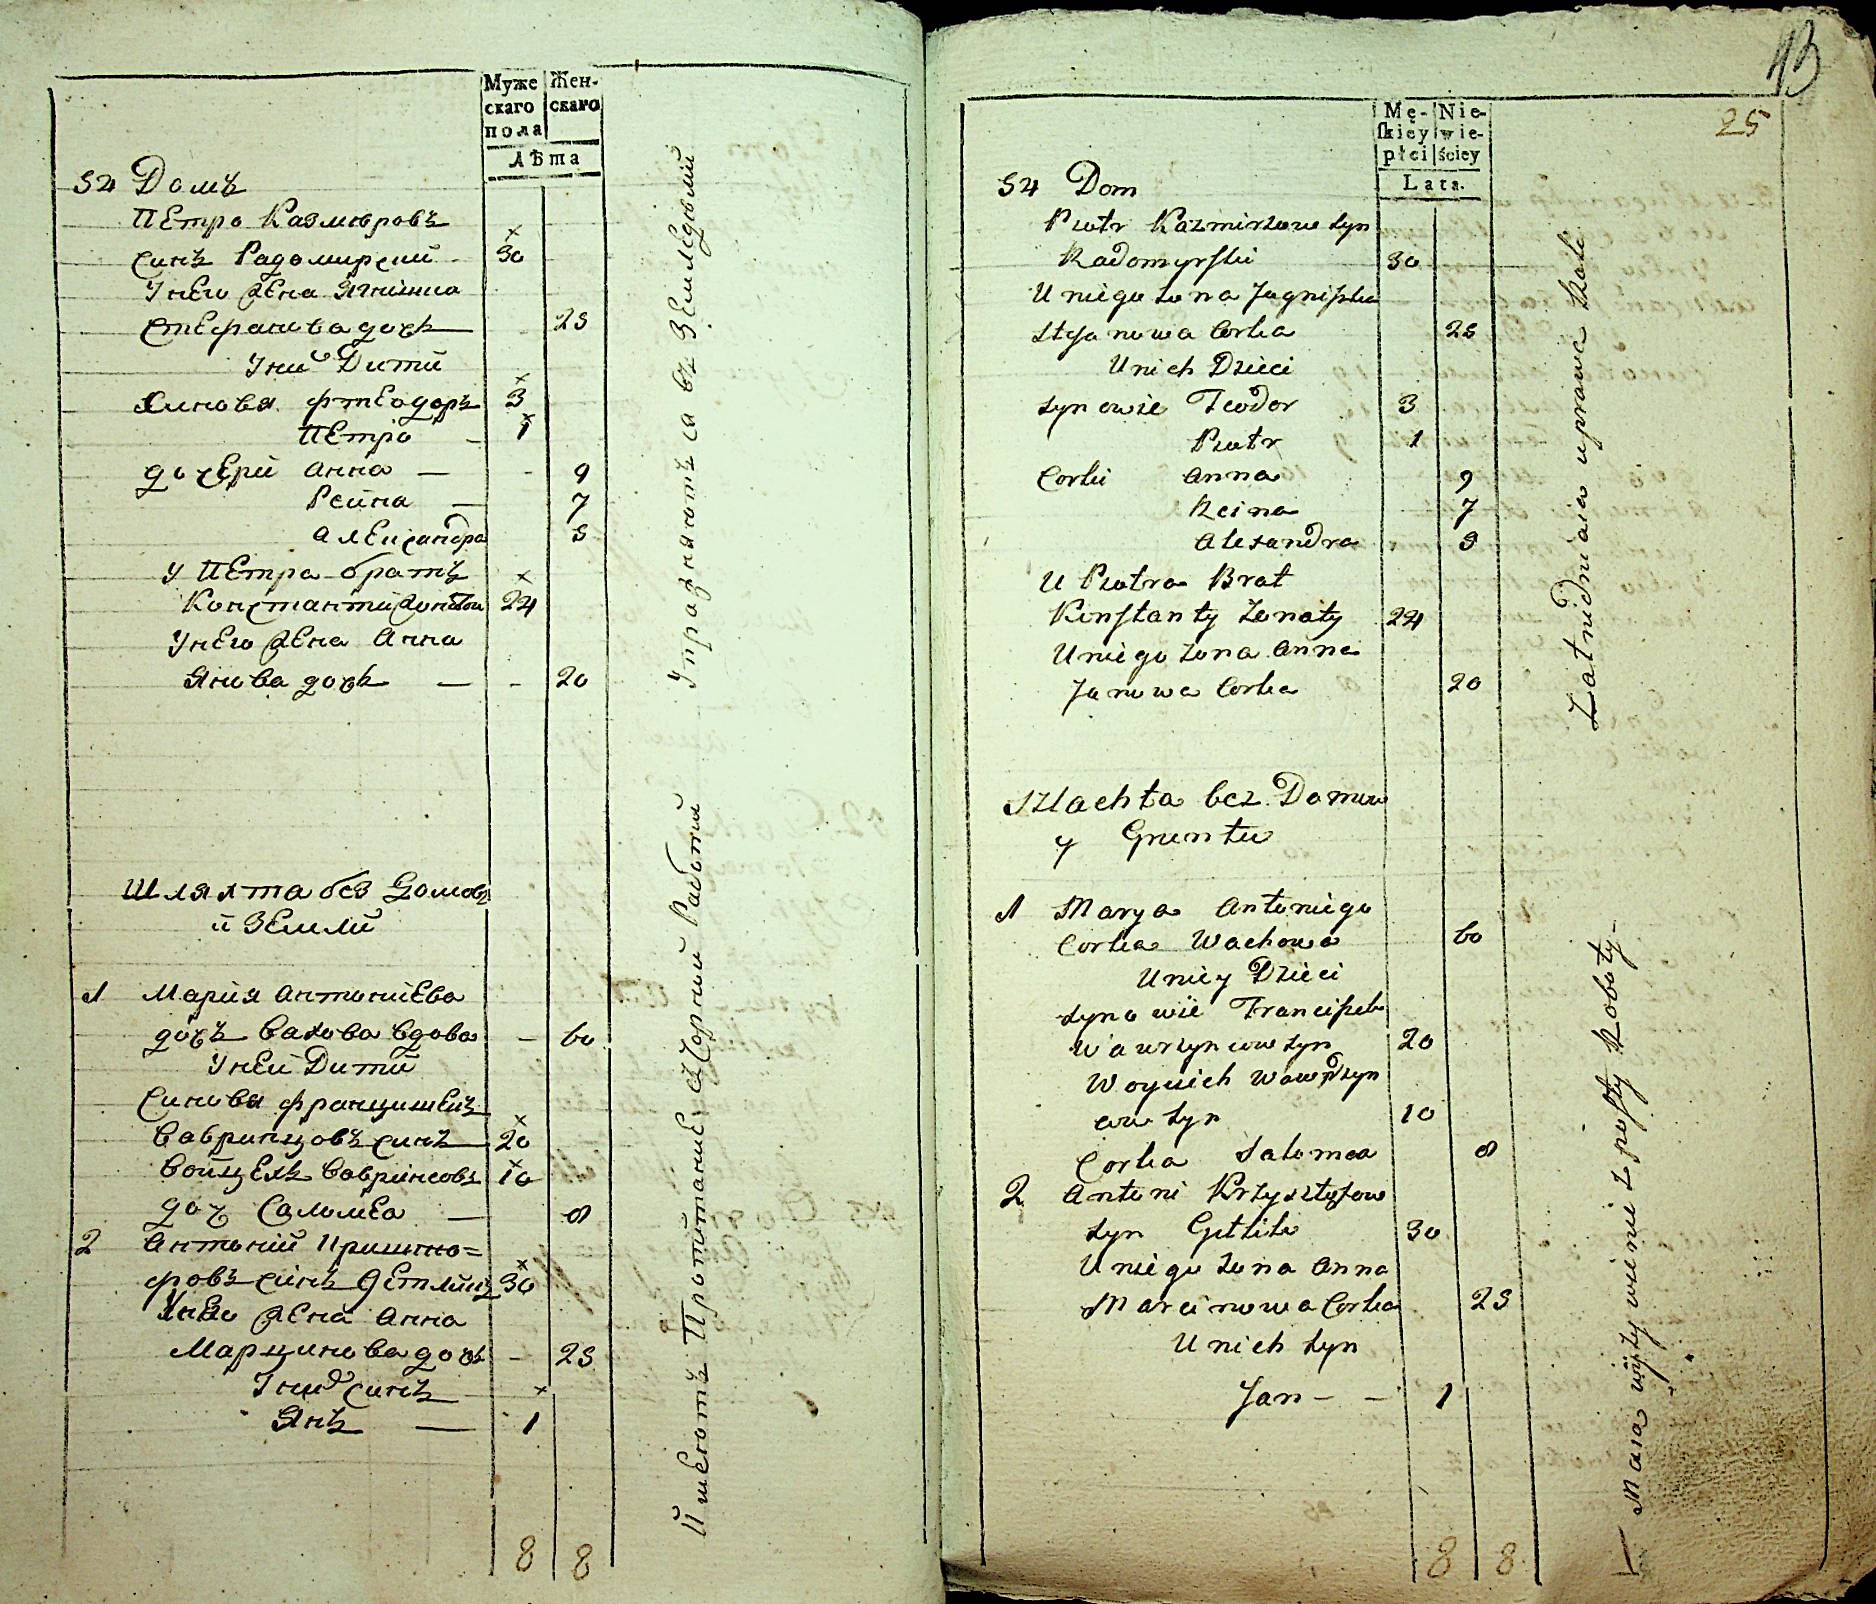 Муже
скаго
пола
Жен-
скаго
Лѣта
54 Домъ
Петро Казмѣровъ
синъ Радомирский 30
У него жена Ягнишка
Стефанова дочь 25
У них Дити
Синовя Фтеодоръ 3
Петро 1
дочери Анна 9
Реина 7
Александра 5
У Петра братъ
Константи 24
У него жена Анна
Янова дочь 20
Упражняются в Земледелий
Шляхта без Домовъ
и Земли
1 Мария Антониева
дочъ Вахова вдова 60
У ней Дити
Синовя Францишекъ
Вавринцовъ синъ 20
Войцехъ Вавринсовъ 10
доч Саломеа 8
2 Антоний Криштно=
фовъ синъ Гетликъ 30
У него жена Анна
Марцинова дочь 25
У них синъ
Янъ 1
Имеютъ Пропитание с Чорний Работи
8 8
13
25
Mę-
skiey
płci
Nie-
wie-
ściey
Lata.
54 Dom
Piotr Kazmirzow syn
Radomyrski 30
U niego żona Jagniszka
Stefanowa Corka 25
U nich Dzieci
synowie Teodor 3
Piotr 1
Corki Anna 9
Reina 7
Alexandra 5
U Piotra Brat
Konstanty żonaty 24
U niego żona Anna
Janowa Corka 20
Zatrudniaia uprawe Roli
Szlachta bez Domow
y Gruntu
1 Marya Antoniego
Corka Wachowa 60
U niey Dzieci
synowie Franciszek
Wawrzyncow syn 20
Woyciech Wawrzyn
cow syn 10
Corka Salomea 8
2 Antoni Krzysztofow
syn Getlik 30
U niego żona Anna
Marcinowa Corka 25
U nich syn
Jan 1
Maia wyżywienie z prosty Roboty
8 8